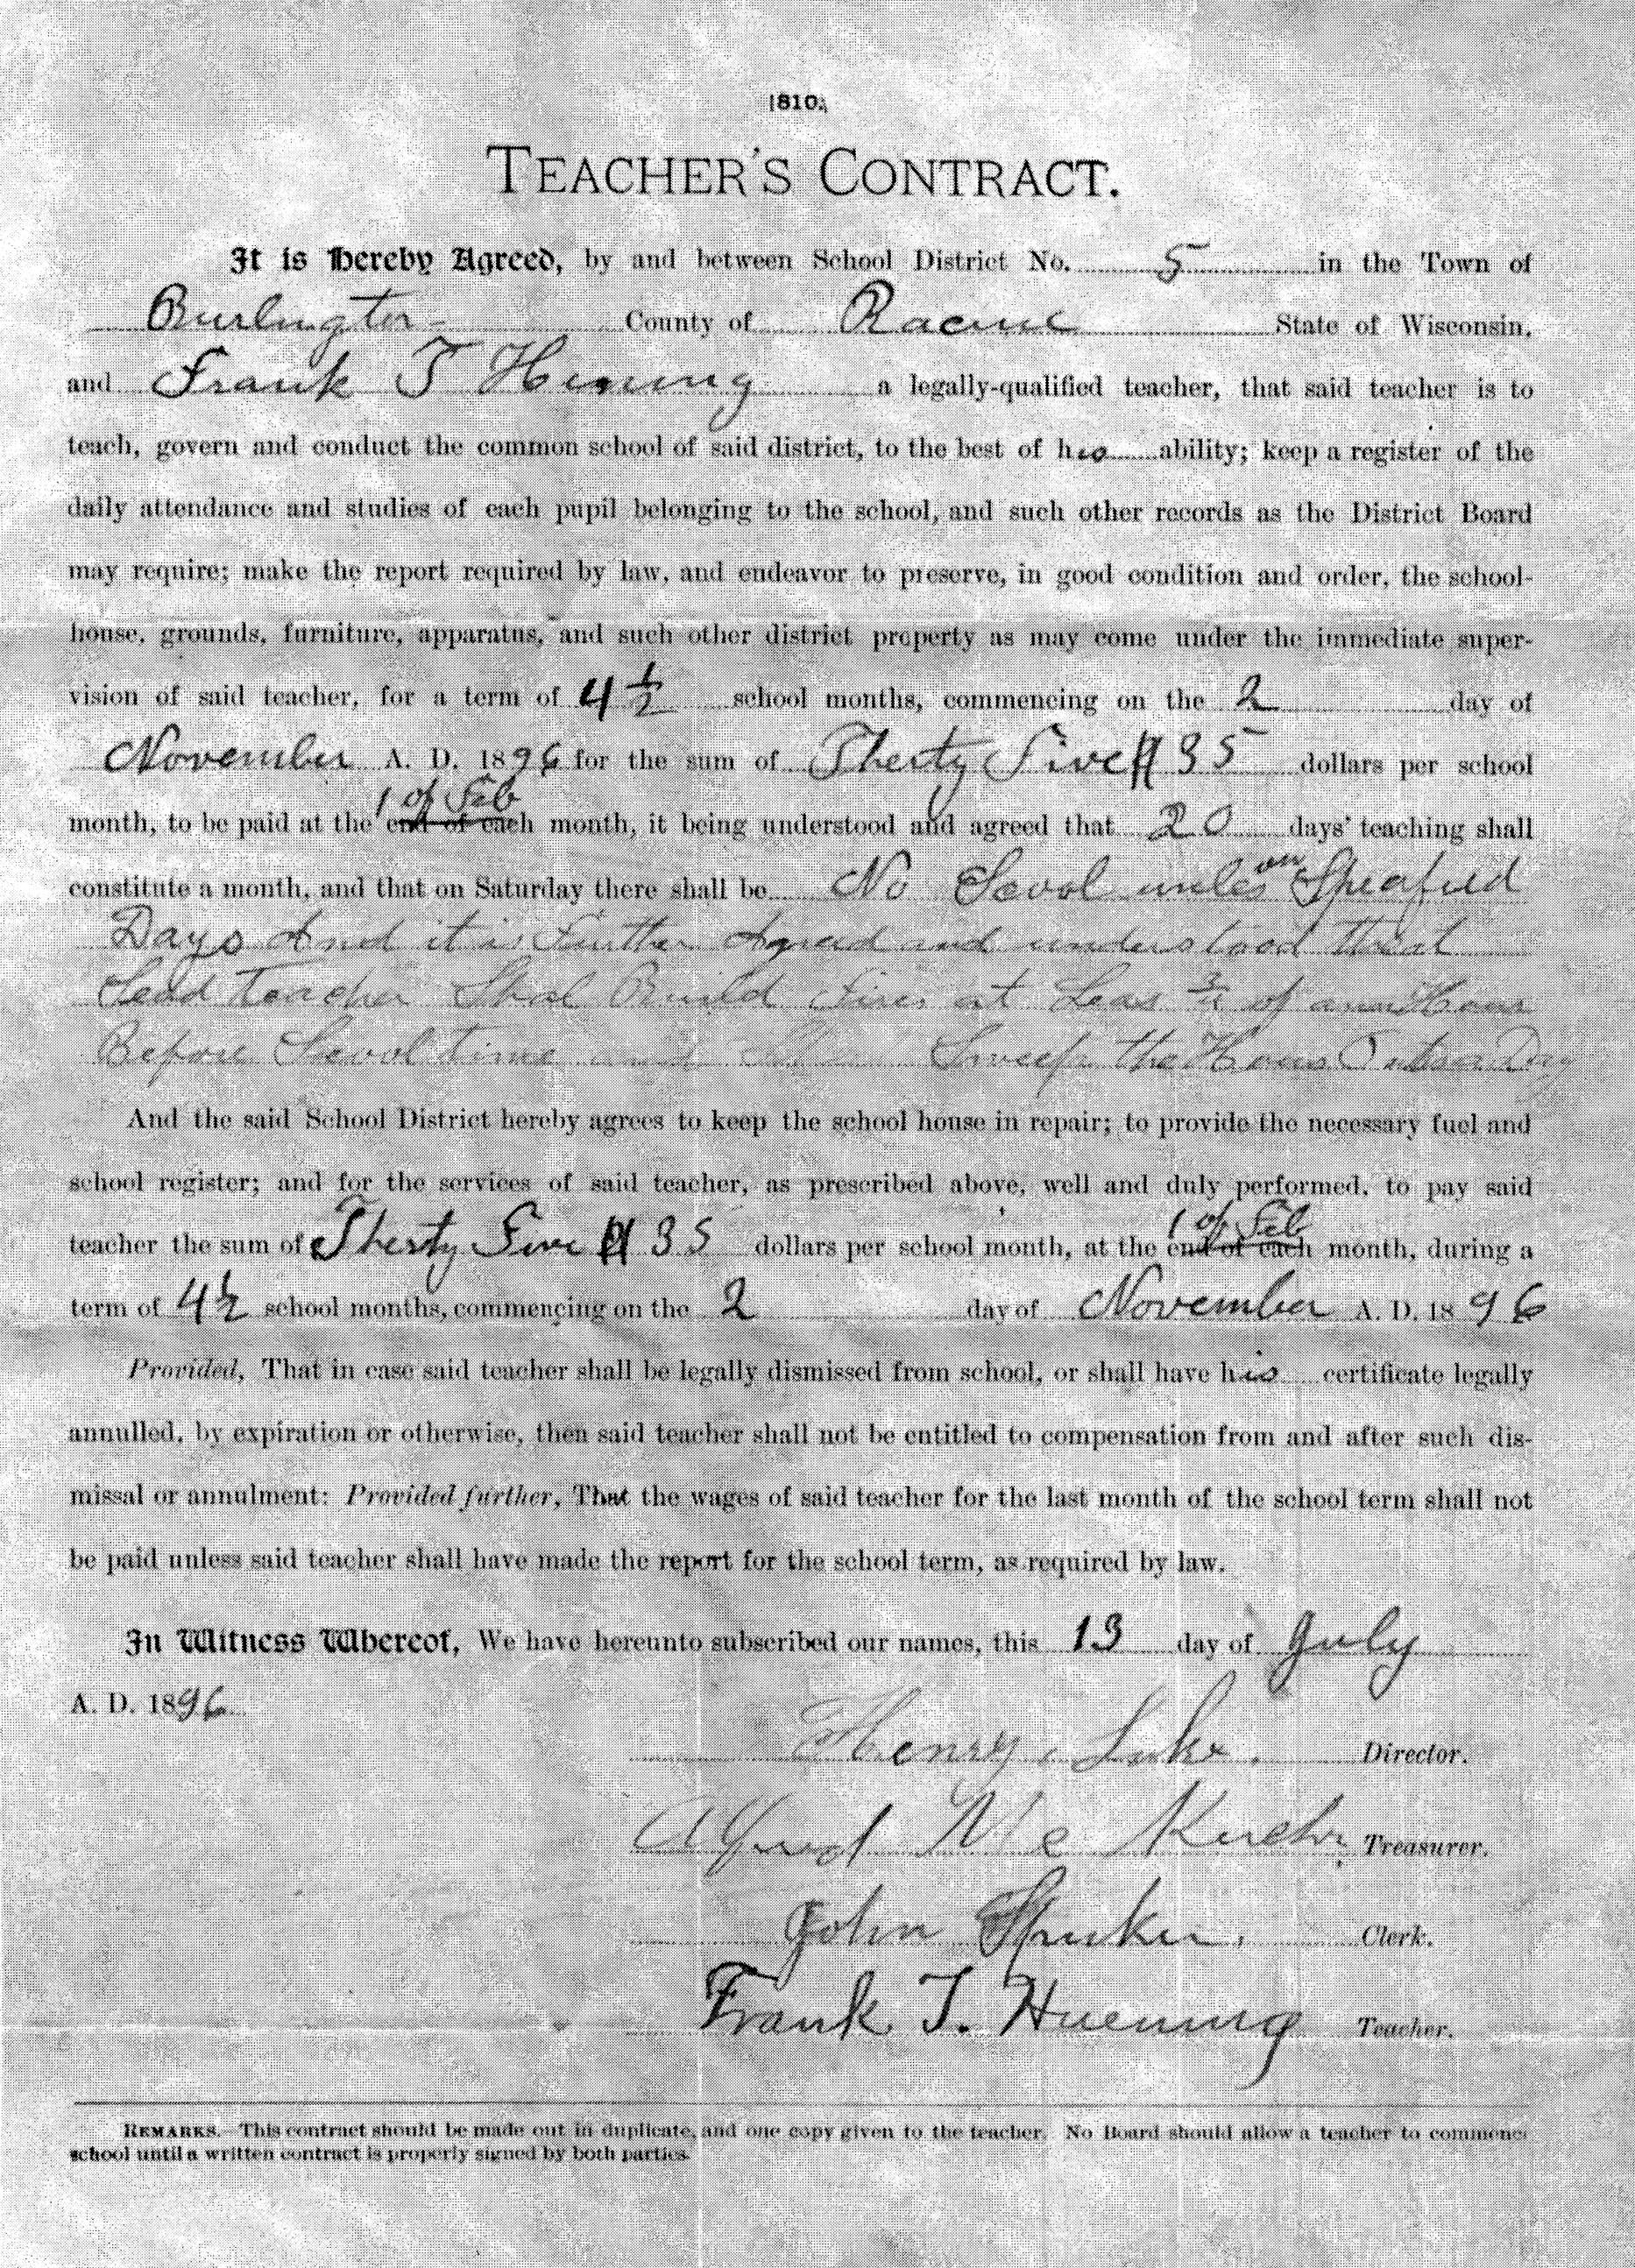 1810.
TEACHER'S CONTRACT.
It is Hereby Agreed, by and between School District No. 5 in the Town of
Burlington County of Racine State of Wisconsin,
and Frank T Hening a legally-qualified teacher, that said teacher is to
teach, govern and conduct the common school of said district, to the best of his ability; keep a register of the
daily attendance and studies of each pupil belonging to the school, and such other records as the District Board
may require; make the report required by law, and endeavor to preserve, in good condition and order, the school-
house, grounds, furniture, apparatus, and such other district property as may come under the immediate super-
vision of said teacher, for a term of 4 1/2 school months, commencing on the 2 day of
November A. D. 1896 for the sum of Therty Five $ 35 dollars per school
1 of Feb
month, to be paid at the end of each month, it being understood and agreed that 20 days' teaching shall
constitute a month, and that on Saturday there shall be No Scool unles on Speafied
Days And it is Further Agread and understood that
Sead Teacher Shal Build Fires at Leas 3/4 of ann Hour
Before Scool time and Sweep the Hous Ontsa Day
And the said School District hereby agrees to keep the school house in repair; to provide the necessary fuel and
school register; and for the services of said teacher, as prescribed above, well and duly performed, to pay said
1 of Feb
teacher the sum of Therty Five $ 35 dollars per school month, at the end of each month, during a
term of 4 1/2 school months, commencing on the 2 day of November A. D. 1896
Provided, That in case said teacher shall be legally dismissed from school, or shall have his certificate legally
annulled, by expiration or otherwise, then said teacher shall not be entitled to compensation from and after such dis-
missal or annulment: Provided further, That the wages of said teacher for the last month of the school term shall not
be paid unless said teacher shall have made the report for the school term, as required by law.
In Witness Whereof, We have hereunto subscribed our names, this 13 day of July
A. D. 1896
Henry Luke. Director.
Alfred Mc Treasurer.
John Clerk.
Frank T. Huening Teacher.
REMARKS. This contract should be made out in duplicate, and one copy given to the teacher. No Board should allow a teacher to commence
school until a written contract is properly signed by both parties.